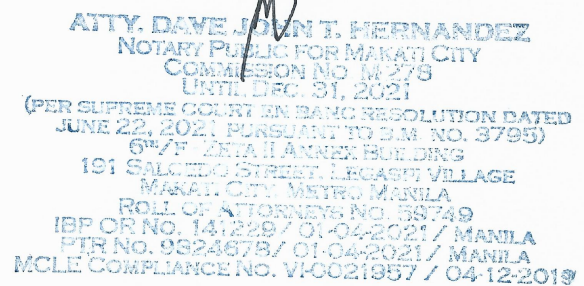 ATTY. DAVE JOHN T. HERNANDEZ
NOTARY PUBLIC FOR MAKATI CITY
COMMISSION NO. M-278
UNTIL DEC. 31, 2021
(PER SUPREME COURT EN BANC RESOLUTION DATED
JUNE 22, 2021 PURSUANT TO B.M. NO. 3795)
6TH/F ZETA II ANNEX BUILDING
191 SALCEDO STREET, LEGASPI VILLAGE
MAKATI CITY, METRO MANILA
ROLL OF ATTORNEYS NO. 59749
IBP OR NO. 141229/ 01-04-2021/ MANILA
PTR NO. 9324678/ 01-04-2021/ MANILA
MCLE COMPLIANCE NO. VI-0021957 / 04-12-2019